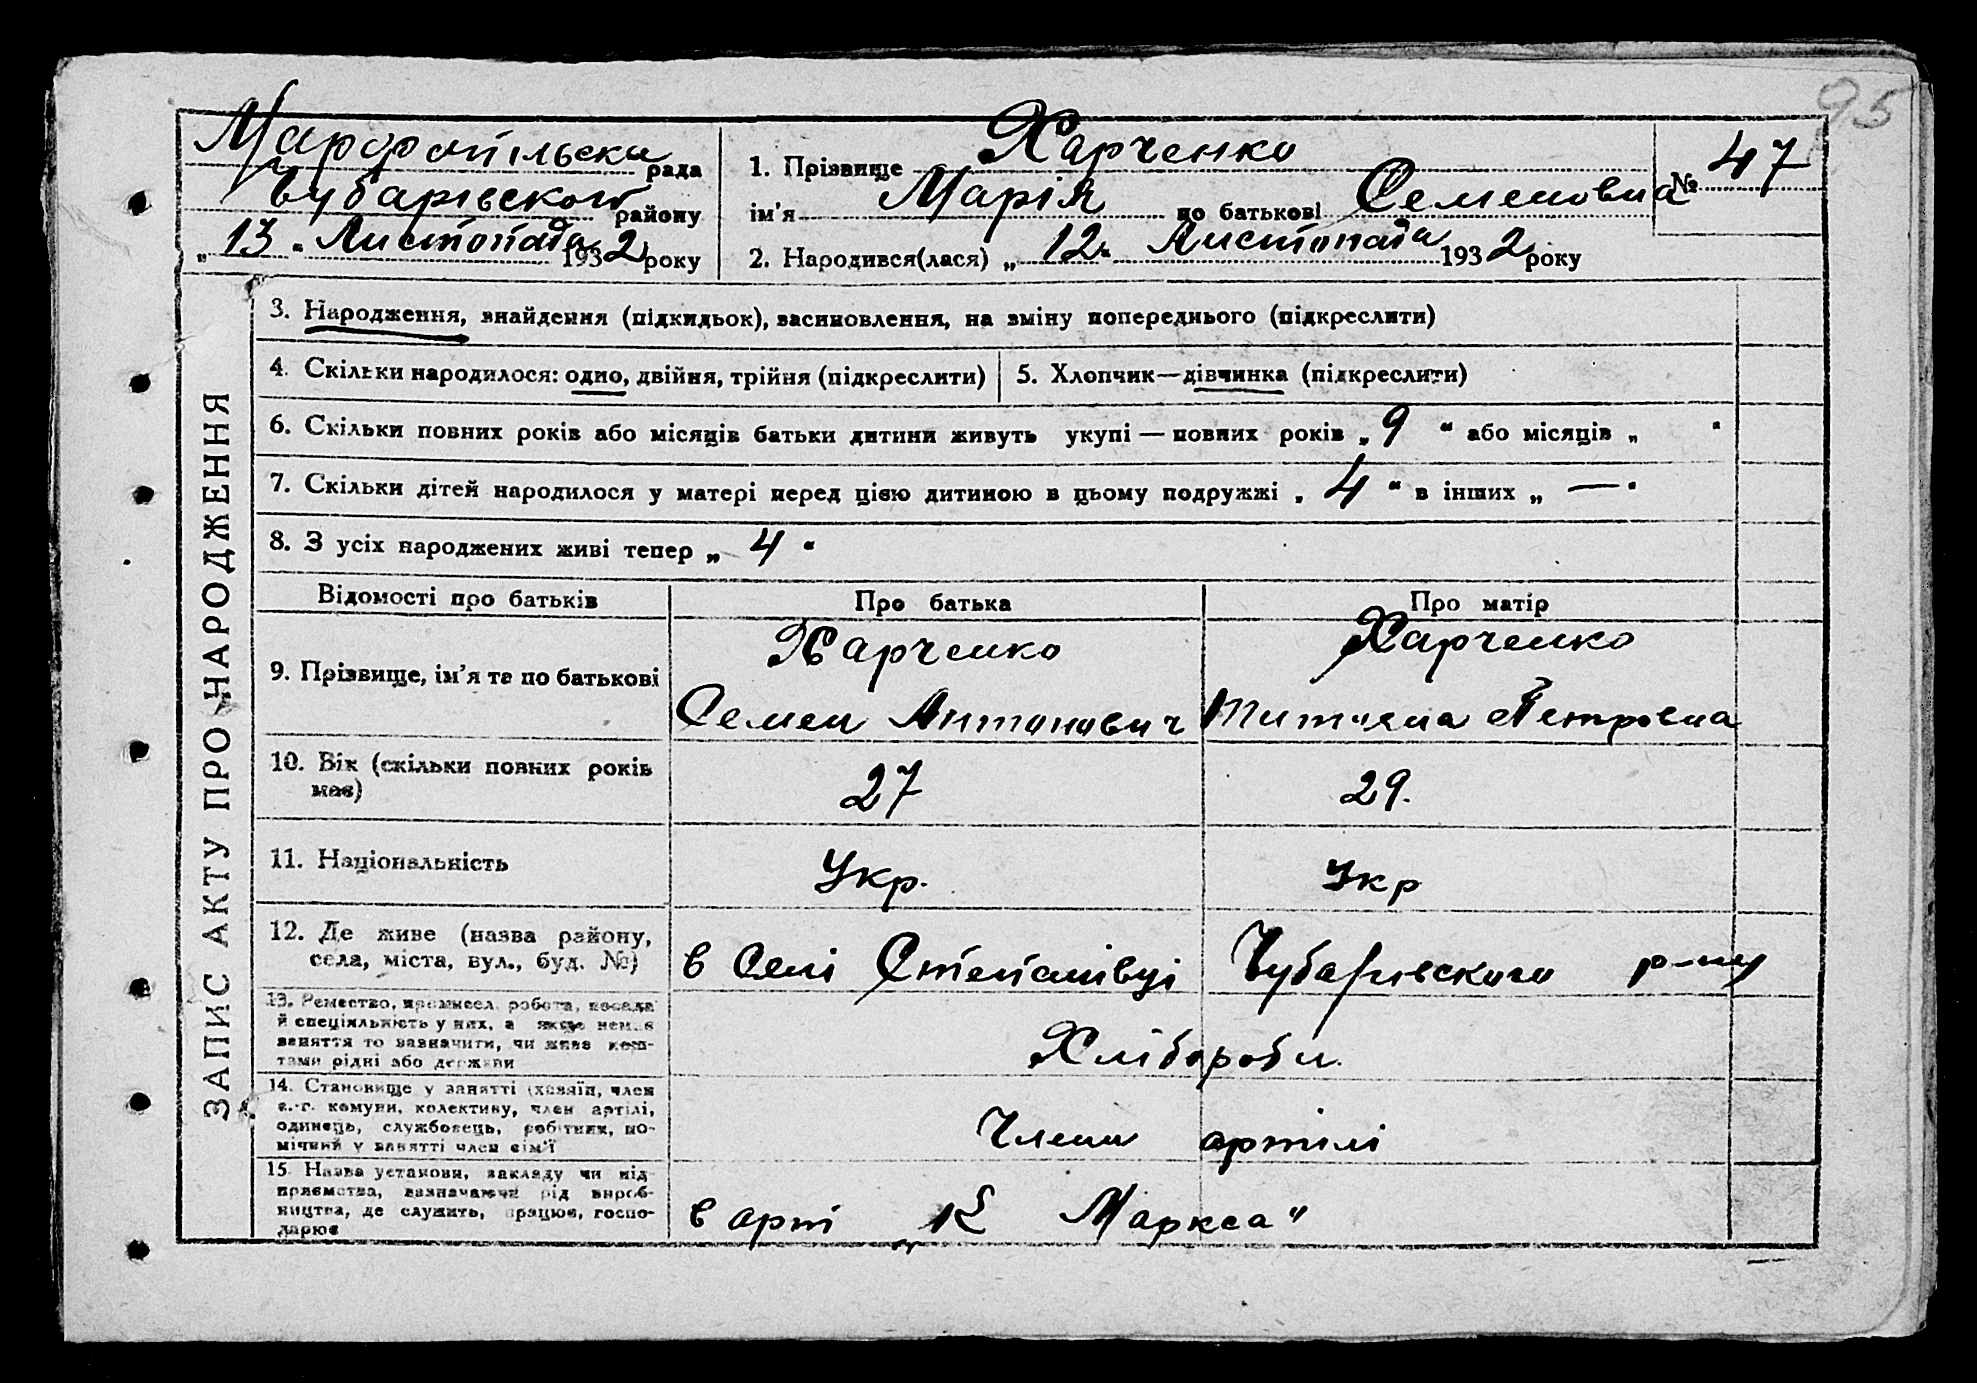 95
Марфопільська рада
Чубарівского району
„ 13 " Листопада 1932 року
1. Прізвище Харченко
ім'я Марія по батькові Семеновна
№ 47
2. Народився(лася) „ 12 " Листопада 1932 року
ЗАПИС АКТУ ПРО НАРОДЖЕННЯ
3. Народження, знайдення (підкидьок), засиновлення, на зміну попереднього (підкреслити)
4. Скільки народилося: одно, двійня, трійня (підкреслити)
5. Хлопчик—дівчинка (підкреслити)
6. Скільки повних років або місяців батьки дитини живуть укупі — повних років „ 9 " або місяців „ "
7. Скільки дітей народилося у матері перед цією дитиною в цьому подружжі „ 4 " в інших „ — "
8. З усіх народжених живі тепер „ 4 "
Відомості про батьків
Про батька
Про матір
9. Прізвище, ім'я та по батькові
Харченко
Семен Антонович
Харченко
Титяна Петровна
10. Вік (скільки повних років
має)
27
29.
11. Національність
Укр.
Укр
12. Де живе (назва району,
села, міста, вул., буд. №)
в Селі Степанівці Чубарівского р-ну
13. Ремество, промисел, робота, посада
й спеціяльність у них, а якщо немає
заняття то зазначити, чи живе кош-
тами рідні або держави
Хлібороби.
14. Становище у занятті (хазяїн, член
с.-г. комуни, колективу, член артілі,
одинець, службовець, робітник, по-
мічний у занятті член сім'ї
Члени артілі
15. Назва установи, закладу чи під-
приємства, зазначаючи рід вироб-
ництва, де служить, працює, госпо-
дарює
в арті „К Маркса"